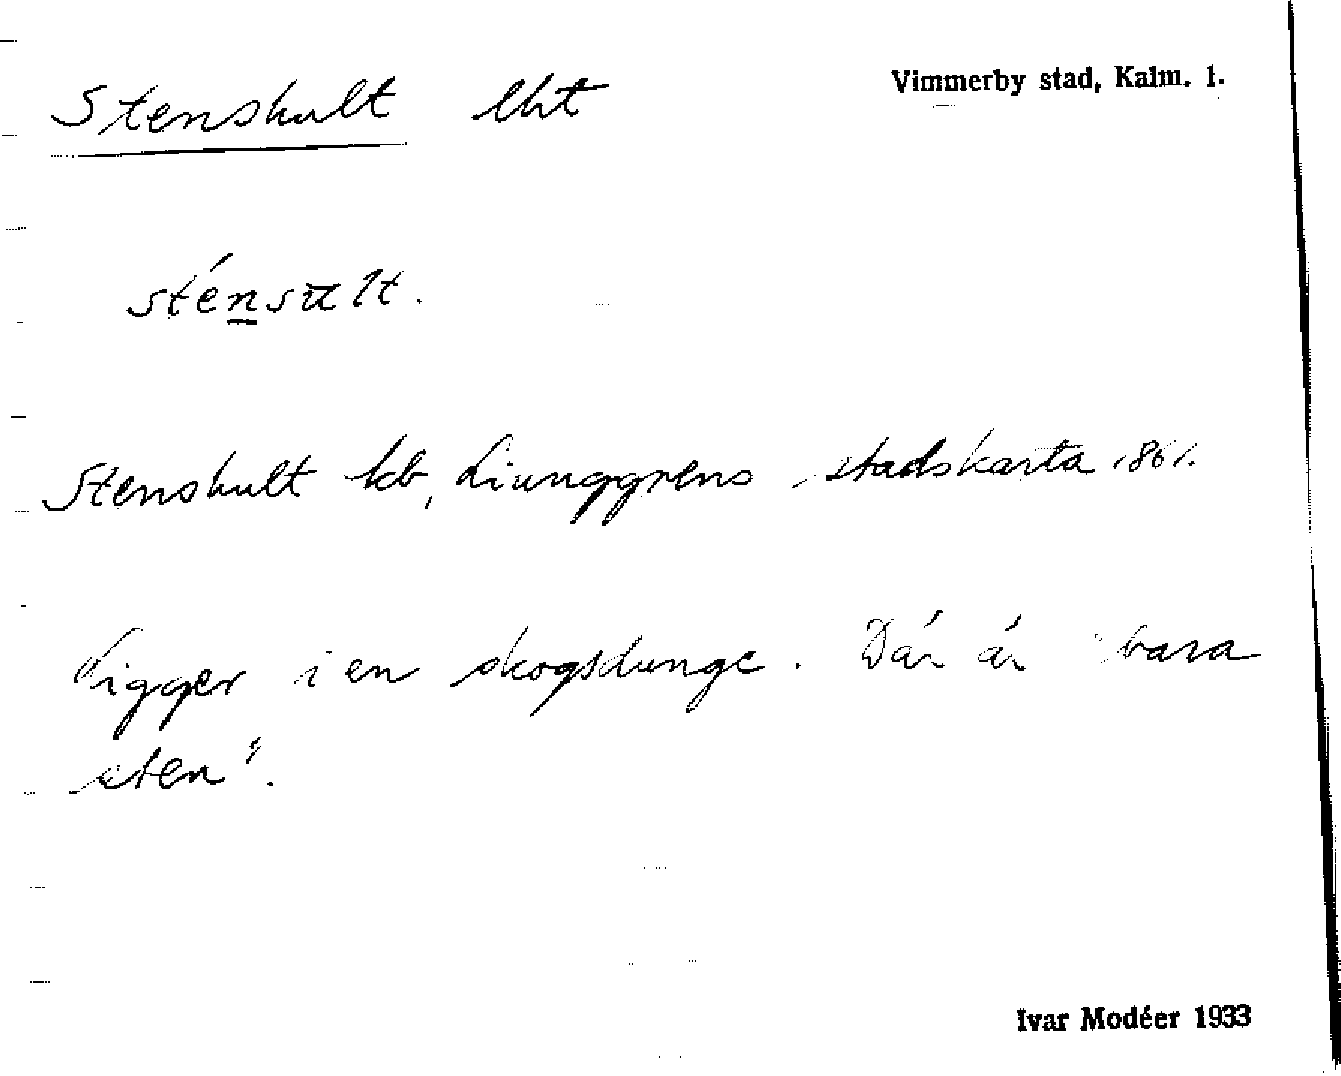 Stenskult lht
Vimmerby stad, Kalm. l.
sténsult.
Stenskult kb, Liunggrens stadskarta 1861.
Ligger i en skogsdunge. Där är "bara
sten".
Ivar Modéer 1933